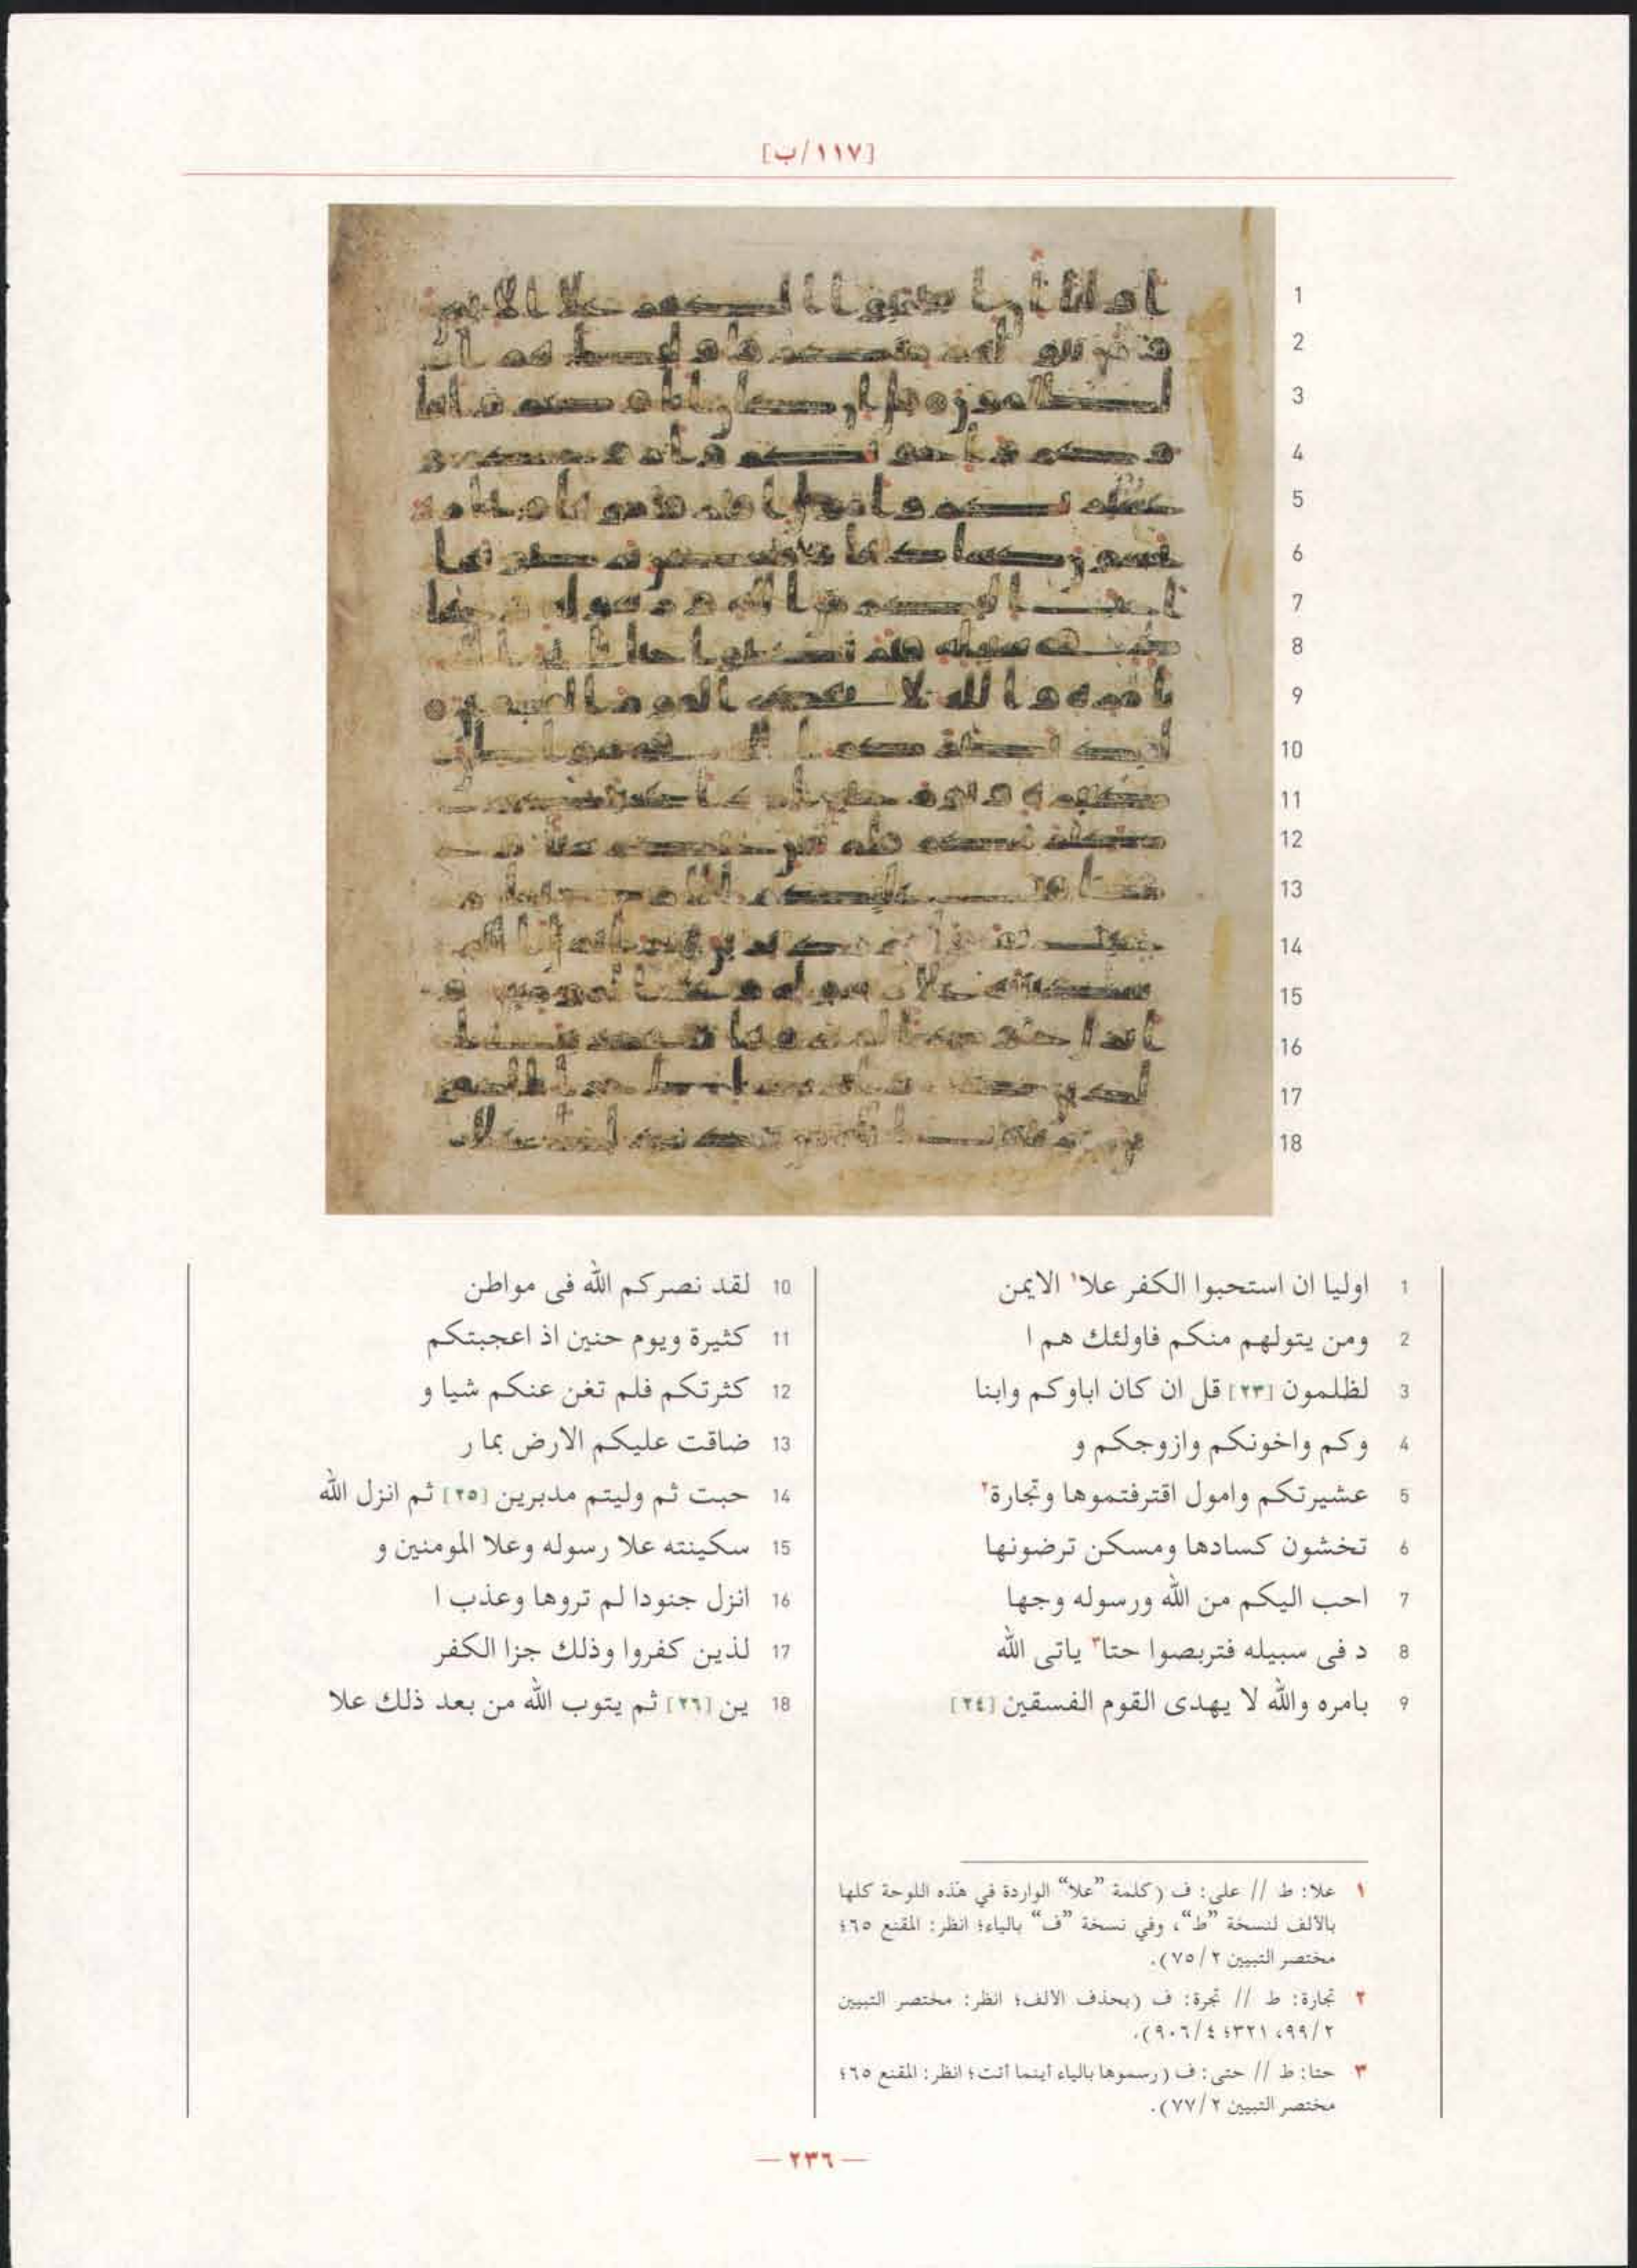 [١١٧/ب]
1 اوليا ان استحبوا الكفر علا١ الايمن
2 ومن يتولهم منكم فاولئك هم ا
3 لظلمون [٢٣] قل ان كان اباوكم وابنا
4 وكم واخونكم وازوجكم و
5 عشيرتكم وامول اقترفتموها وتجارة٢
6 تخشون كسادها ومسكن ترضونها
7 احب اليكم من الله ورسوله وجها
8 د فى سبيله فتربصوا حتا٣ ياتى الله
9 بامره والله لا يهدى القوم الفسقين [٢٤]
10 لقد نصركم الله فى مواطن
11 كثيرة ويوم حنين اذ اعجبتكم
12 كثرتكم فلم تغن عنكم شيا و
13 ضاقت عليكم الارض بما ر
14 حبت ثم وليتم مدبرين [٢٥] ثم انزل الله
15 سكينته علا رسوله وعلا المومنين و
16 انزل جنودا لم تروها وعذب ا
17 لذين كفروا وذلك جزا الكفر
18 ين [٢٦] ثم يتوب الله من بعد ذلك علا
١ علا: ط // على: ف (كلمة ”علا“ الواردة في هذه اللوحة كلها
بالألف لنسخة ”ط“، وفي نسخة ”ف“ بالياء؛ انظر: المقنع ٦٥؛
مختصر التبيين ٢/ ٧٥).
٢ تجارة: ط // تجرة: ف (بحذف الالف؛ انظر: مختصر التبيين
٢/ ٩٩، ٣٢١؛ ٤/ ٩٠٦).
٣ حتا: ط // حتى: ف (رسموها بالياء أينما أتت؛ انظر: المقنع ٦٥؛
مختصر التبيين ٢/ ٧٧).
— ٢٣٦ —